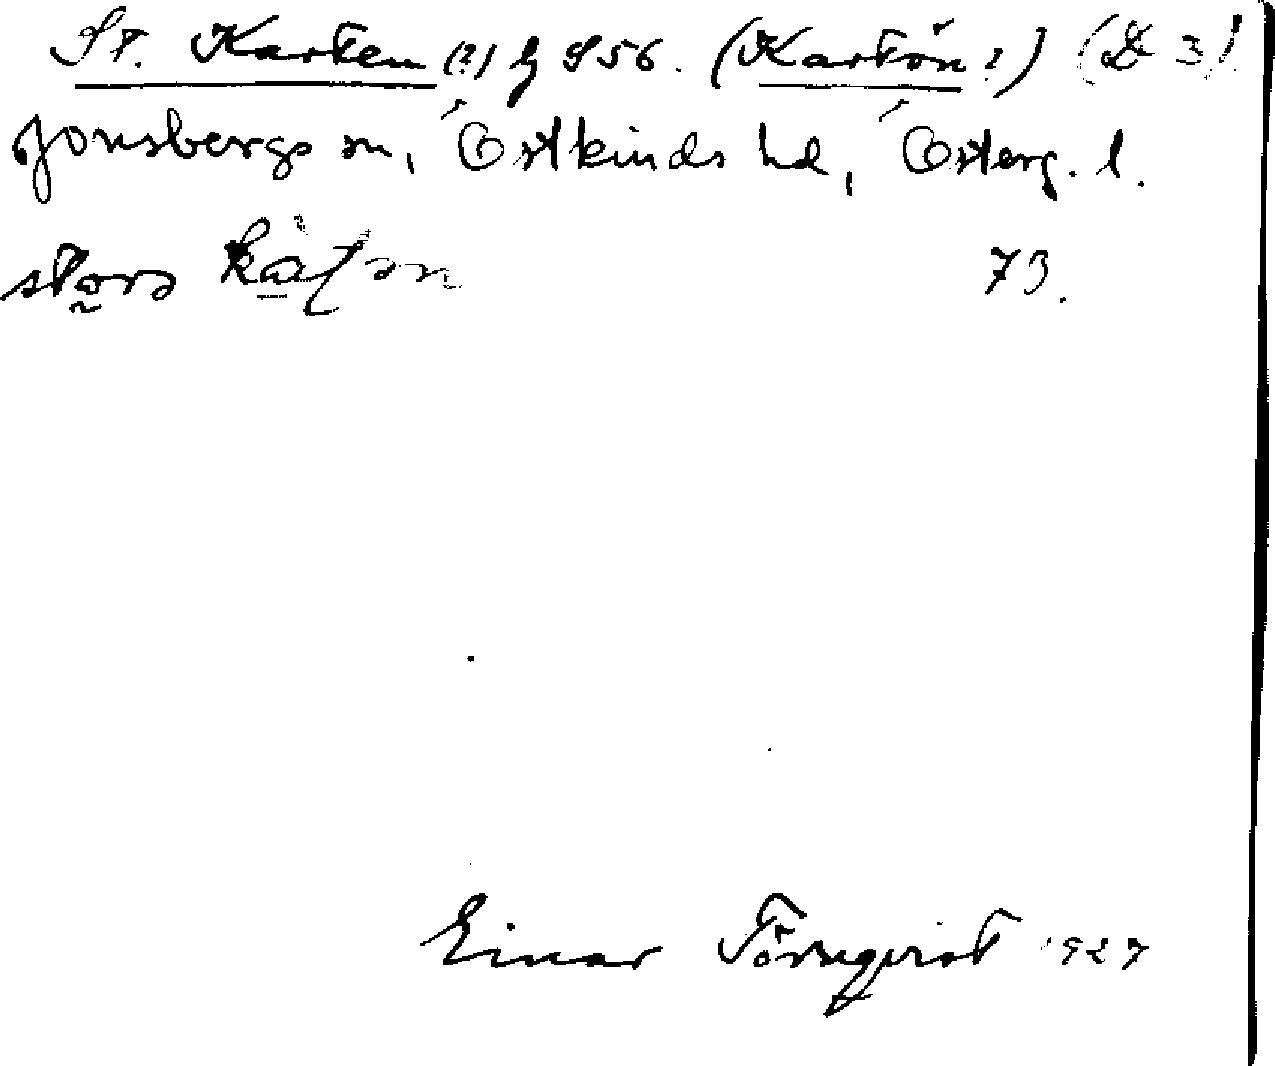 St. Karten (?) G S 56. (Kartön?) (Æ 3)
Jonsbergs sn, Östkinds hd, Österg. l.
stora 73.
Einar Törnqvist 1927